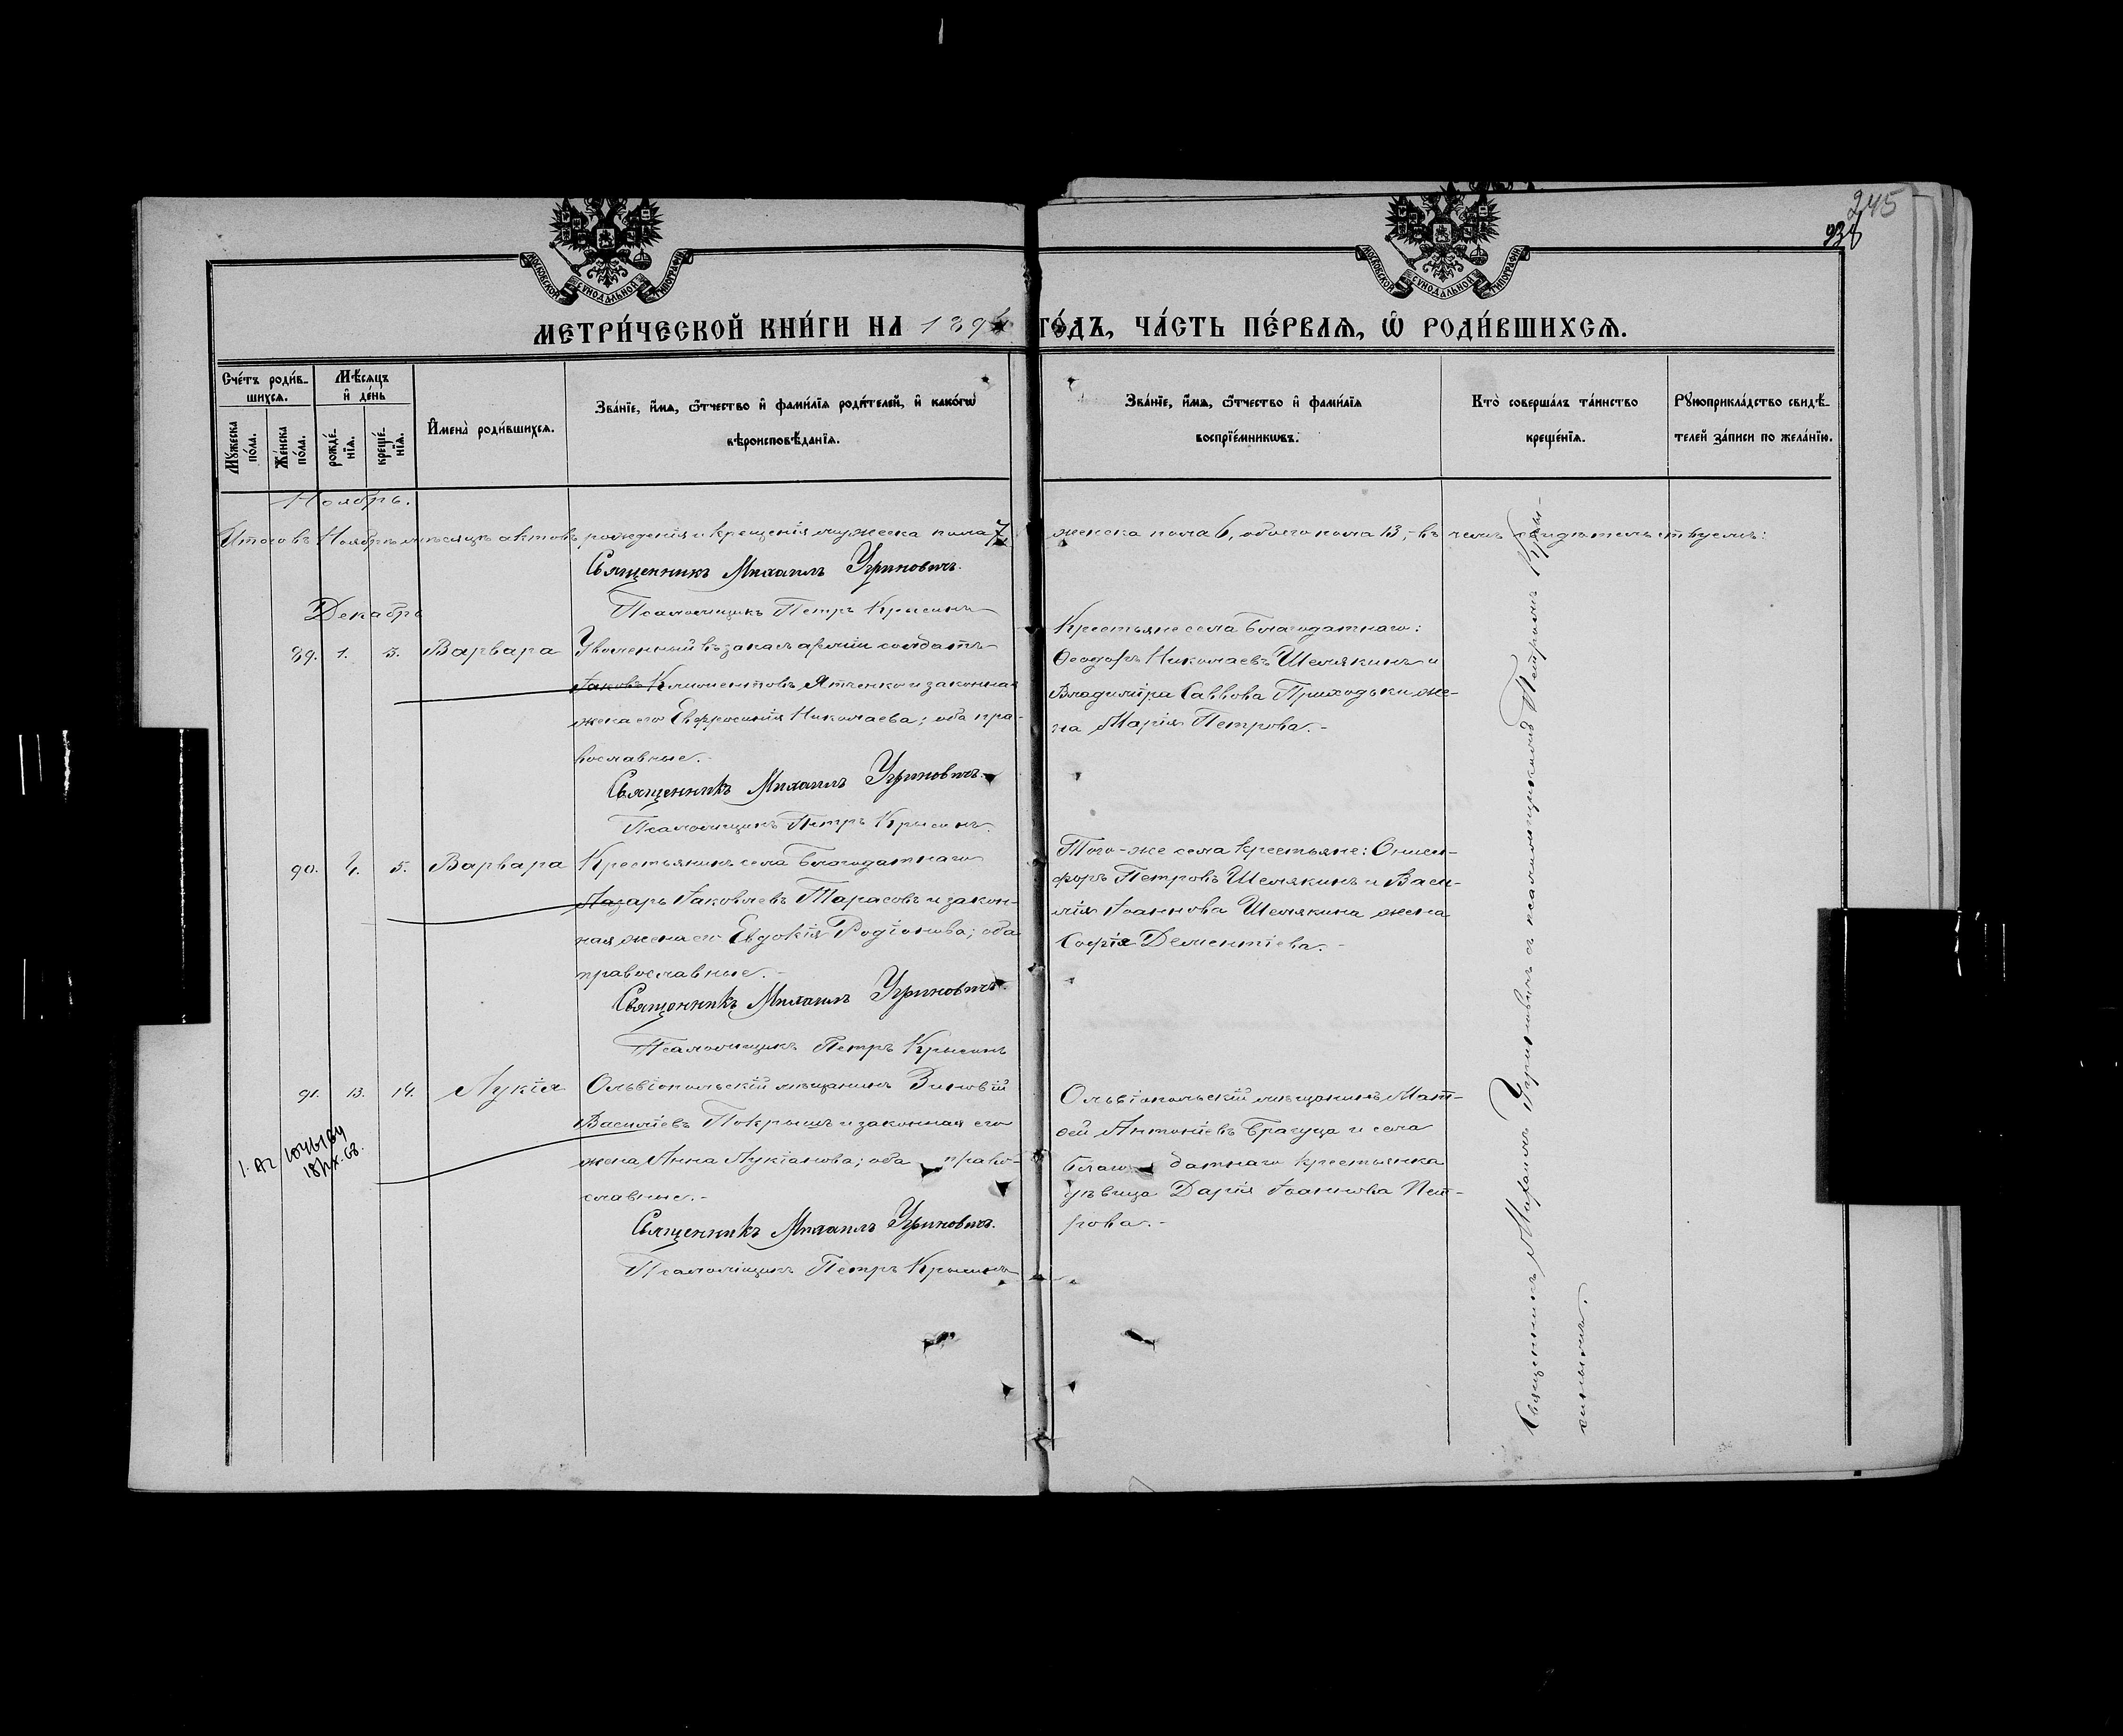 245
938
МОСКОВСКОЙ СУНОДАЛЬНОЙ ТИПОГРАФІИ
МОСКОВСКОЙ СУНОДАЛЬНОЙ ТИПОГРАФІИ
МЕТРИ́ЧЕСКОЙ КНИ́ГИ НА 189 ГО́ДЪ, ЧА́СТЬ ПЕ́РВАѦ, Ѡ РОДИ́ВШИХСѦ.
Сче́тъ роди́в-
шихсѧ.
Мꙋ́жеска по́ла.
Же́нска по́ла.
Мѣ́сѧцъ
и҆ де́нь
рожде́-
нїѧ.
креще́-
нїѧ.
И҆мена̀ роди́вшихсѧ.
Зва́нїе, и҆́мѧ, ѻ҆́тчество и҆ фами́лїѧ роди́телей, и҆ како́гѡ
вѣроисповѣ́данїѧ.
Зва́нїе, и҆́мѧ, ѻ҆́тчество и҆ фами́лїѧ
воспрїе́мникѡвъ.
Кто̀ соверша́лъ та́инство
креще́нїѧ.
Рꙋкоприкла́дство свидѣ́-
телей за́писи по жела́нїю.
Ноябрь.
Итого въ Ноябрѣ мѣсяцѣ актовъ рожденія и крещенія мужеска пола 7, женска пола 6, обоего пола 13, - въ чемъ свидѣтельствуемъ:
Священникъ Михаилъ Угриновичъ.
Псаломщикъ Петръ Крысинъ
Декабрь
89. 1. 3. Варвара
Уволенный въ запасъ арміи солдатъ
Іаковъ Климентовъ Ятченко и законная
жена его Евфросинія Николаева; оба пра-
вославные. -
Священникъ Михаилъ Угриновичъ.
Псаломщикъ Петръ Крысинъ.
Крестьяне села Благодатнаго:
Ѳеодоръ Николаевъ Шемякинъ и
Владиміра Саввова Приходьки же-
на Марія Петрова. -
90. 4. 5. Варвара
Крестьянинъ села Благодатнаго
Лазарь Іаковлевъ Тарасовъ и закон-
ная жена его Евдокія Родіонова; оба
православные. -
Священникъ Михаилъ Угриновичъ.
Псаломщикъ Петръ Крысинъ
Того-же села крестьяне: Ониси-
форъ Петровъ Шемякинъ и Васи-
лія Іоаннова Шемякина жена
Софія Дементіева. -
91. 13. 14. Лукія
Ольвіопольскій мѣщанинъ Зиновій
Василіевъ Покрышъ и законная его
жена Анна Лукіанова; оба право-
славные. -
Священникъ Михаилъ Угриновичъ.
Псаломщикъ Петръ Крысинъ
Ольвіопольскій мѣщанинъ Мат-
ѳей Антоніевъ Брагуца и села
Благодатнаго крестьянка
дѣвица Дарія Іоаннова Пет-
рова. -
Священникъ Михаилъ Угриновичъ съ псаломщикомъ Петромъ Кры-
синымъ.